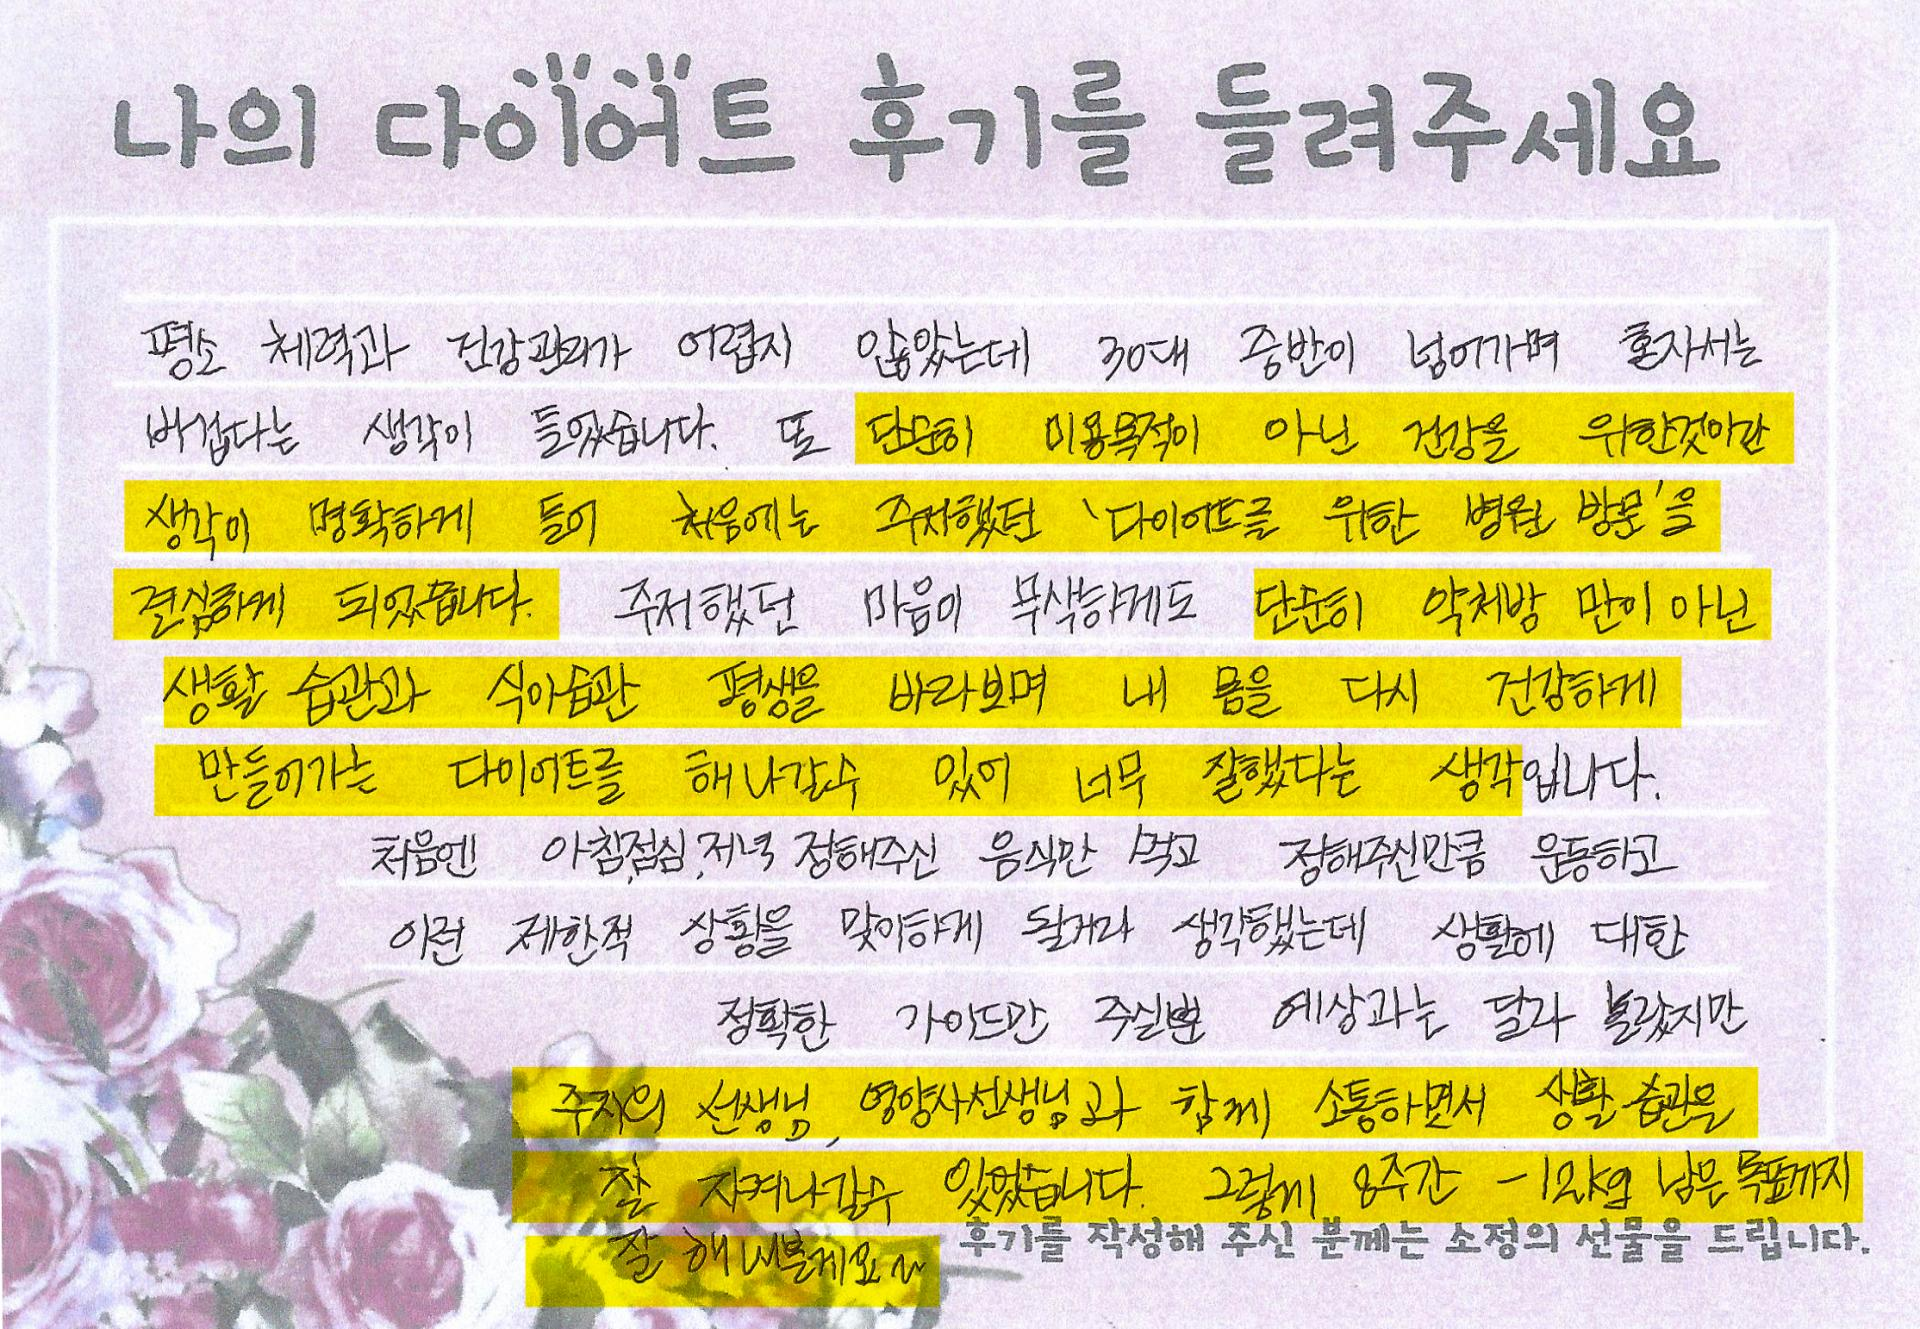 나의 다이어트 후기를 들려주세요
평소 체력과 건강관리가 어렵지 않았는데 30대 중반이 넘어가며 혼자서는
버겁다는 생각이 들었습니다. 또 단순히 미용목적이 아닌 건강을 위한것이란
생각이 명확하게 들어 처음에는 주저했던 '다이어트를 위한 병원 방문'을
결심하게 되었습니다. 주저했던 마음이 무색하게도 단순히 약처방 만이 아닌
생활 습관과 식이습관 평생을 바라보며 내 몸을 다시 건강하게
만들어가는 다이어트를 해나갈수 있어 너무 잘했다는 생각입니다.
처음엔 아침,점심,저녁 정해주신 음식만 먹고 정해주신만큼 운동하고
이런 제한적 상황을 맞이하게 될거라 생각했는데 생활에 대한
정확한 가이드만 주실뿐 예상과는 달라 놀랐지만
주치의 선생님, 영양사선생님과 함께 소통하면서 생활 습관은
잘 지켜나갈수 있었습니다. 그렇게 8주간 -12kg 남은 목표까지
잘 해내볼게요~
후기를 작성해 주신 분께는 소정의 선물을 드립니다.